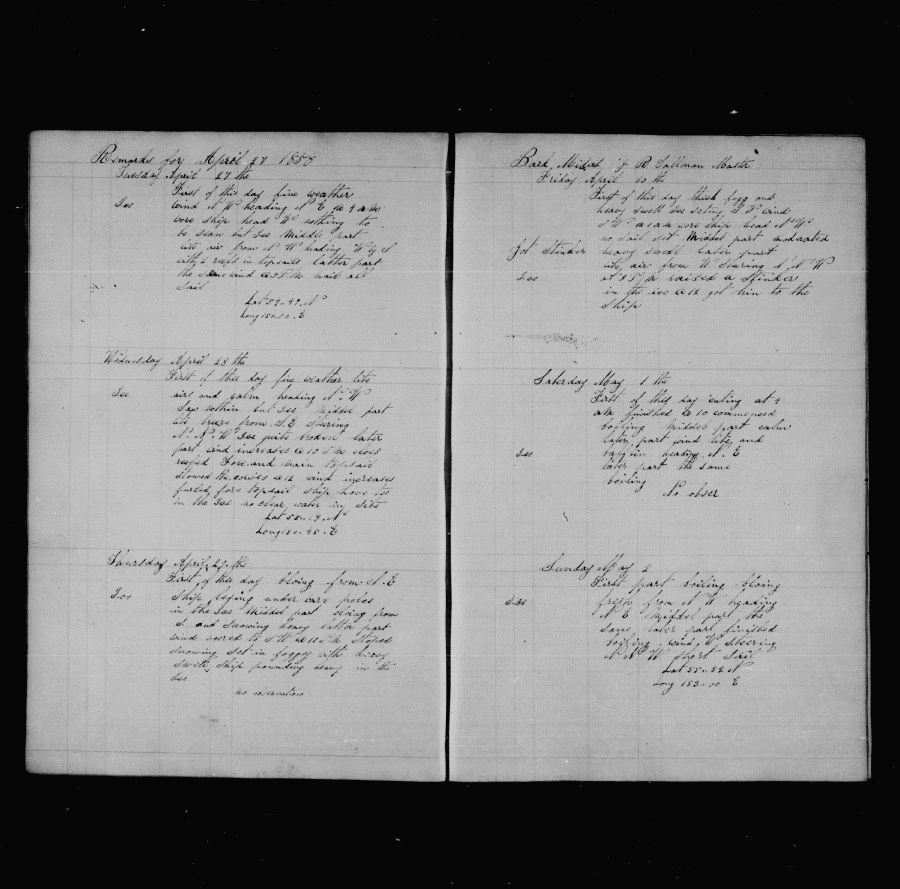 Remarks for April 27 1888
Tuesday April 27 the
First of this day fine weather
Ice
wind N W heading N E @ 4 a m
wore ship head W nothing to
be seen but Ice Middle part
lite air from N W heading W by S
with 2 reef in topsails latter part
the same wind @ 3 P.M. maid all
sail
Lat 54
Long 150 E
Wednesday April 28 the
First of this day fine weather lite
Ice
airs and calm heading N. W
Saw nothin but Ice Middel part
lite breeze from S. E Steering
N. N. W. Ice quite broken later
part wind increases @ 10 P.M. close
reefed Fore and main topsail
@ 12 wind increases
furled fore topsail ship hove too
in the Ice no clear water in site
Lat 55 - 19 N
Long 150 - 45 E
Thursday April 29 the
First of this day bloing from S. E
Ice
Ship lying under bare poles
in the Ice Middel part bloing from
S. and snowing heavy latter part
wind veered to S W @ 10 P.M. stoped
snowing set in foggy with heavy
Swell ship pounding heavy in the
Ice
no observation
Bark R Sallman Master
Friday April 30 th
First of this day thick fogg and
heavy swell Ice seting wind
S W @ 1 a m wore Ship head N W
no sail set Middel part moderated
Got Stinker
heavy swell later part
lite air from W Stearing N N W
Ice
at 5 P M raised a Stinker
in the ice @ 12 got him to the
Ship
Saterday May 1 th
First of this day cuting at 4
a m finished @ 10 commenced
boiling Middel part calm
later part wind lite and
Ice
heading N. E
later part the same
boiling
No obser
Sunday May 2
First part boiling bloing
Ice
fresh from N W heading
N E Middel part the
same later part finished
boiling wind W Steering
N N W Short Sail
Lat 55 - 52 N
Long 153 - 00 E